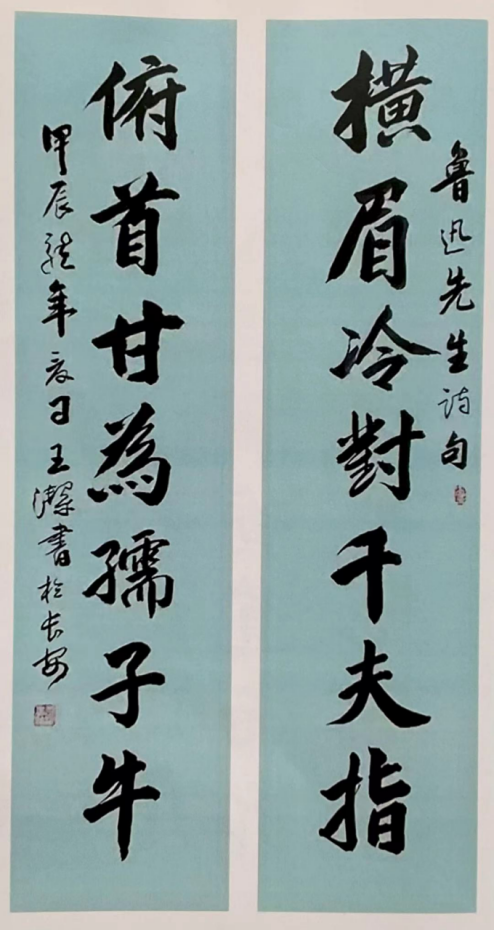 魯迅先生詩句
横眉冷對千夫指
俯首甘為孺子牛
甲辰龍年夏日王潔書於長安